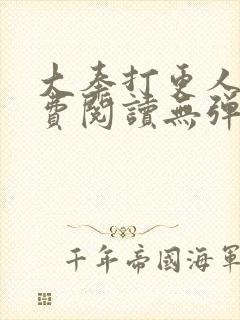 大奉打更人
費閱讀無彈
千年帝國海軍